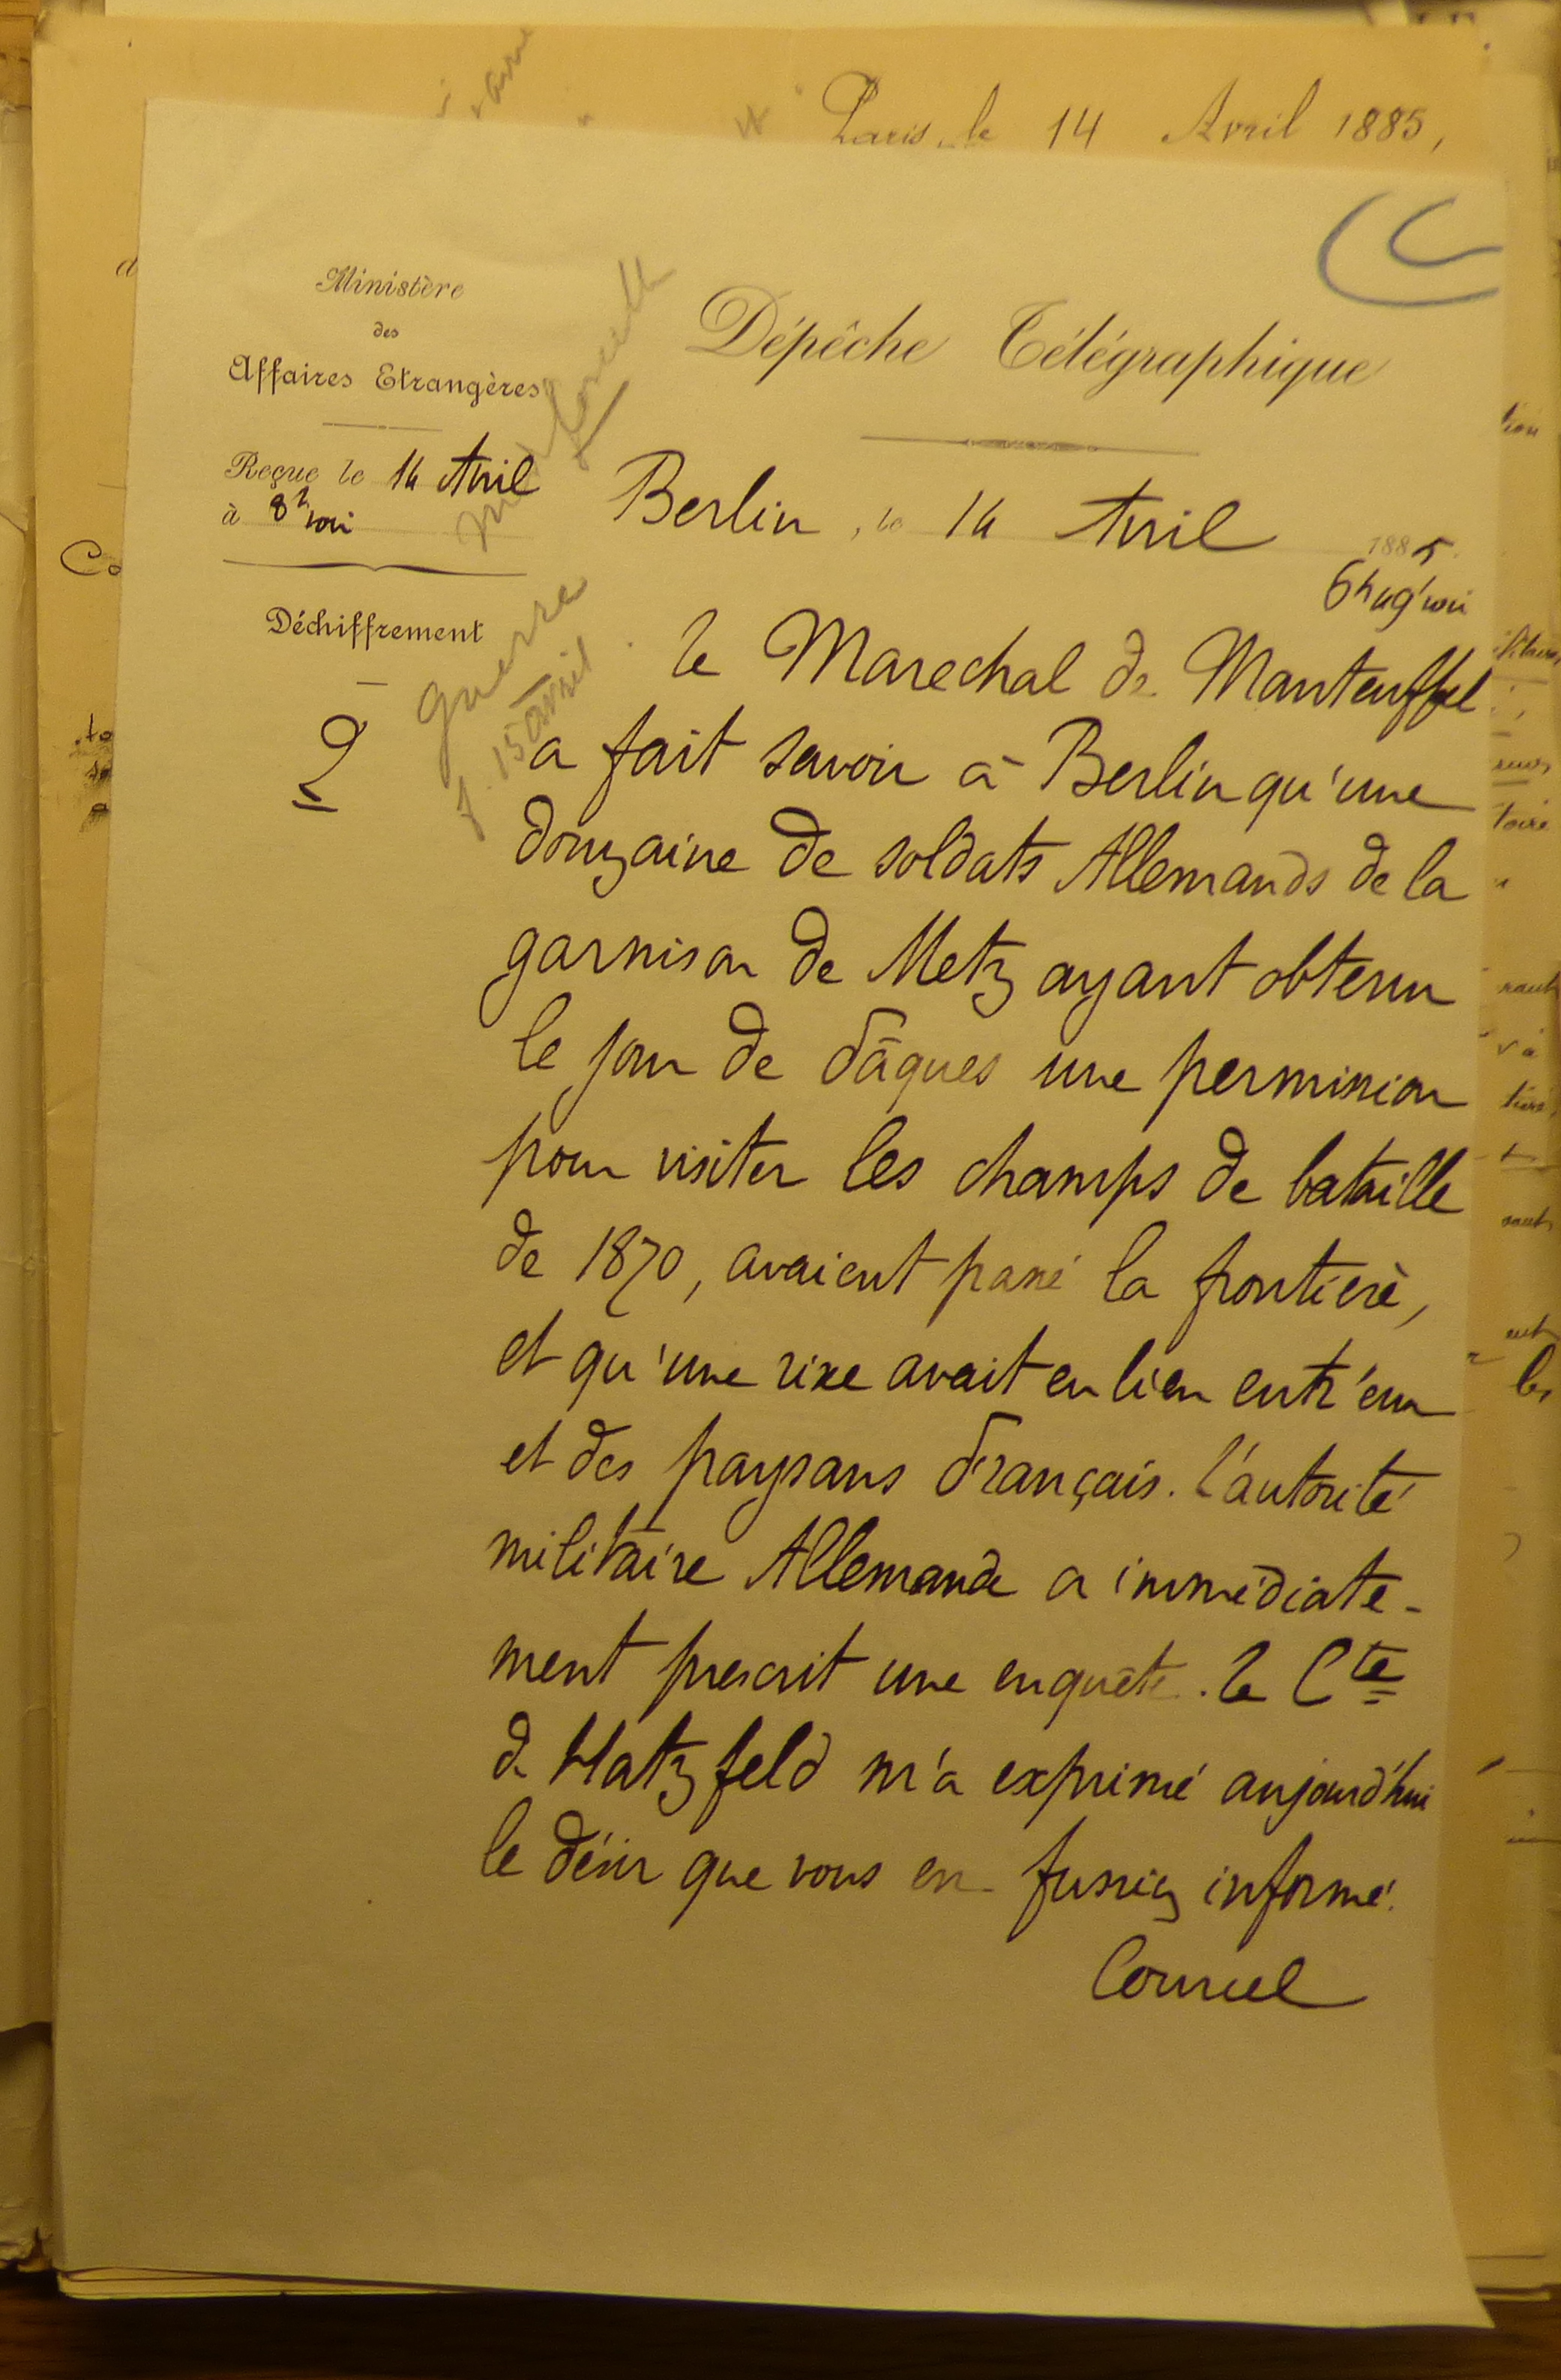 Paris, le 14 Avril 1885,
Ministère
des
Affaires Etrangères
Dépêche Télégraphique
Reçue le 14 Avril
à 8h soir
Berlin, le 14 Avril 1885.
6h 49' soir
Déchiffrement
guerre
15 avril
le Marechal de Manteuffel
a fait savoir à Berlin qu'une
douzaine de soldats Allemands de la
garnison de Metz ayant obtenu
le jour de Pâques une permission
pour visiter les champs de bataille
de 1870, avaient passé la frontière,
et qu'une rixe avait eu lieu entr'eux
et des paysans Français. l'autorité
militaire Allemande a immédiate-
ment prescrit une enquête. le Cte
de Hatzfeld m'a exprimé aujourd'hui
le désir que vous en fussiez informé.
Courcel